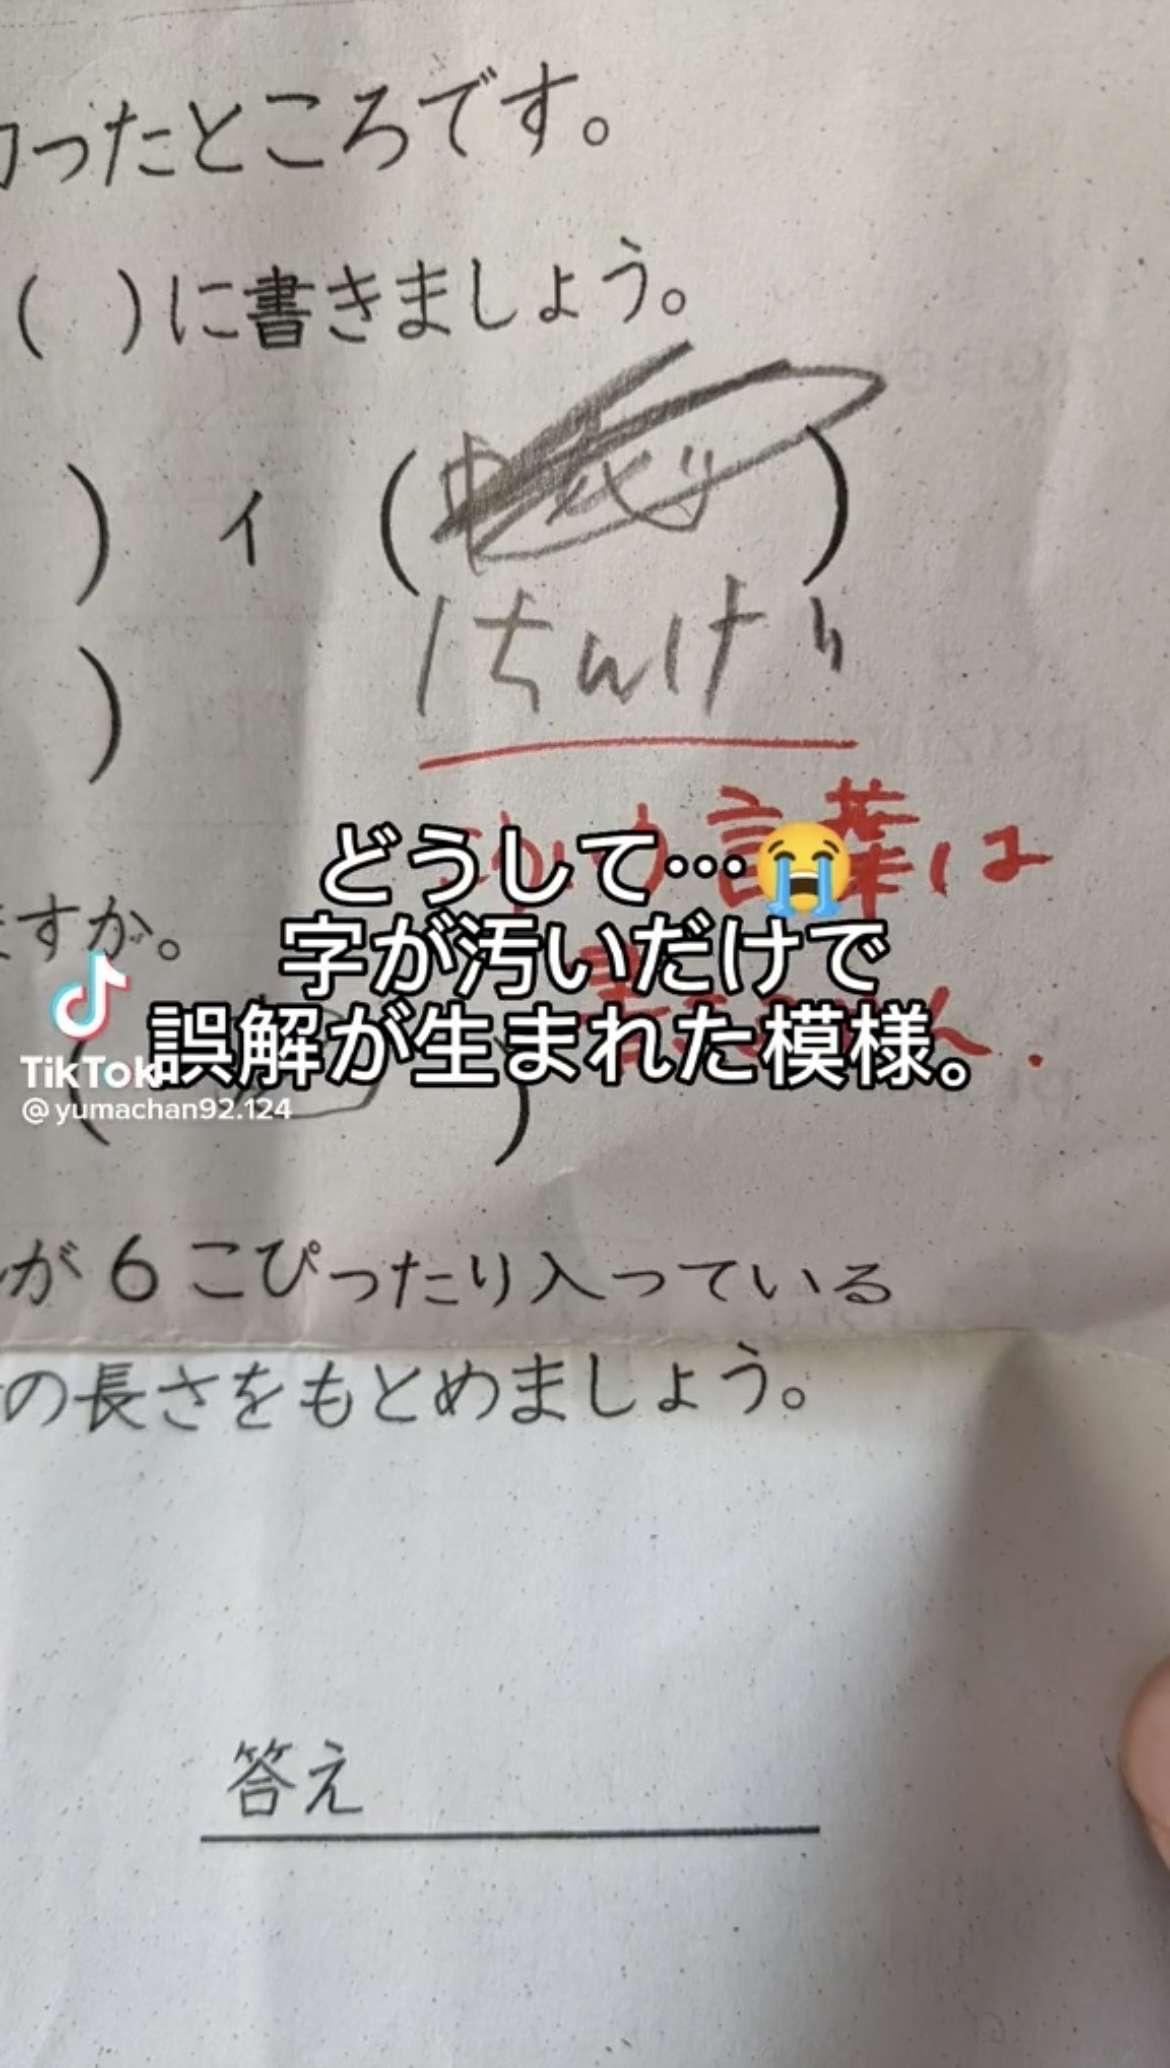 ったところです。
( )に書きましょう。
) イ ( )
)
言葉は
どうして…😭
字が汚いだけで
誤解が生まれた模様。
ますか。
TikTok
@yumachan92.124
( )
が6こぴったり入っている
の長さをもとめましょう。
答え